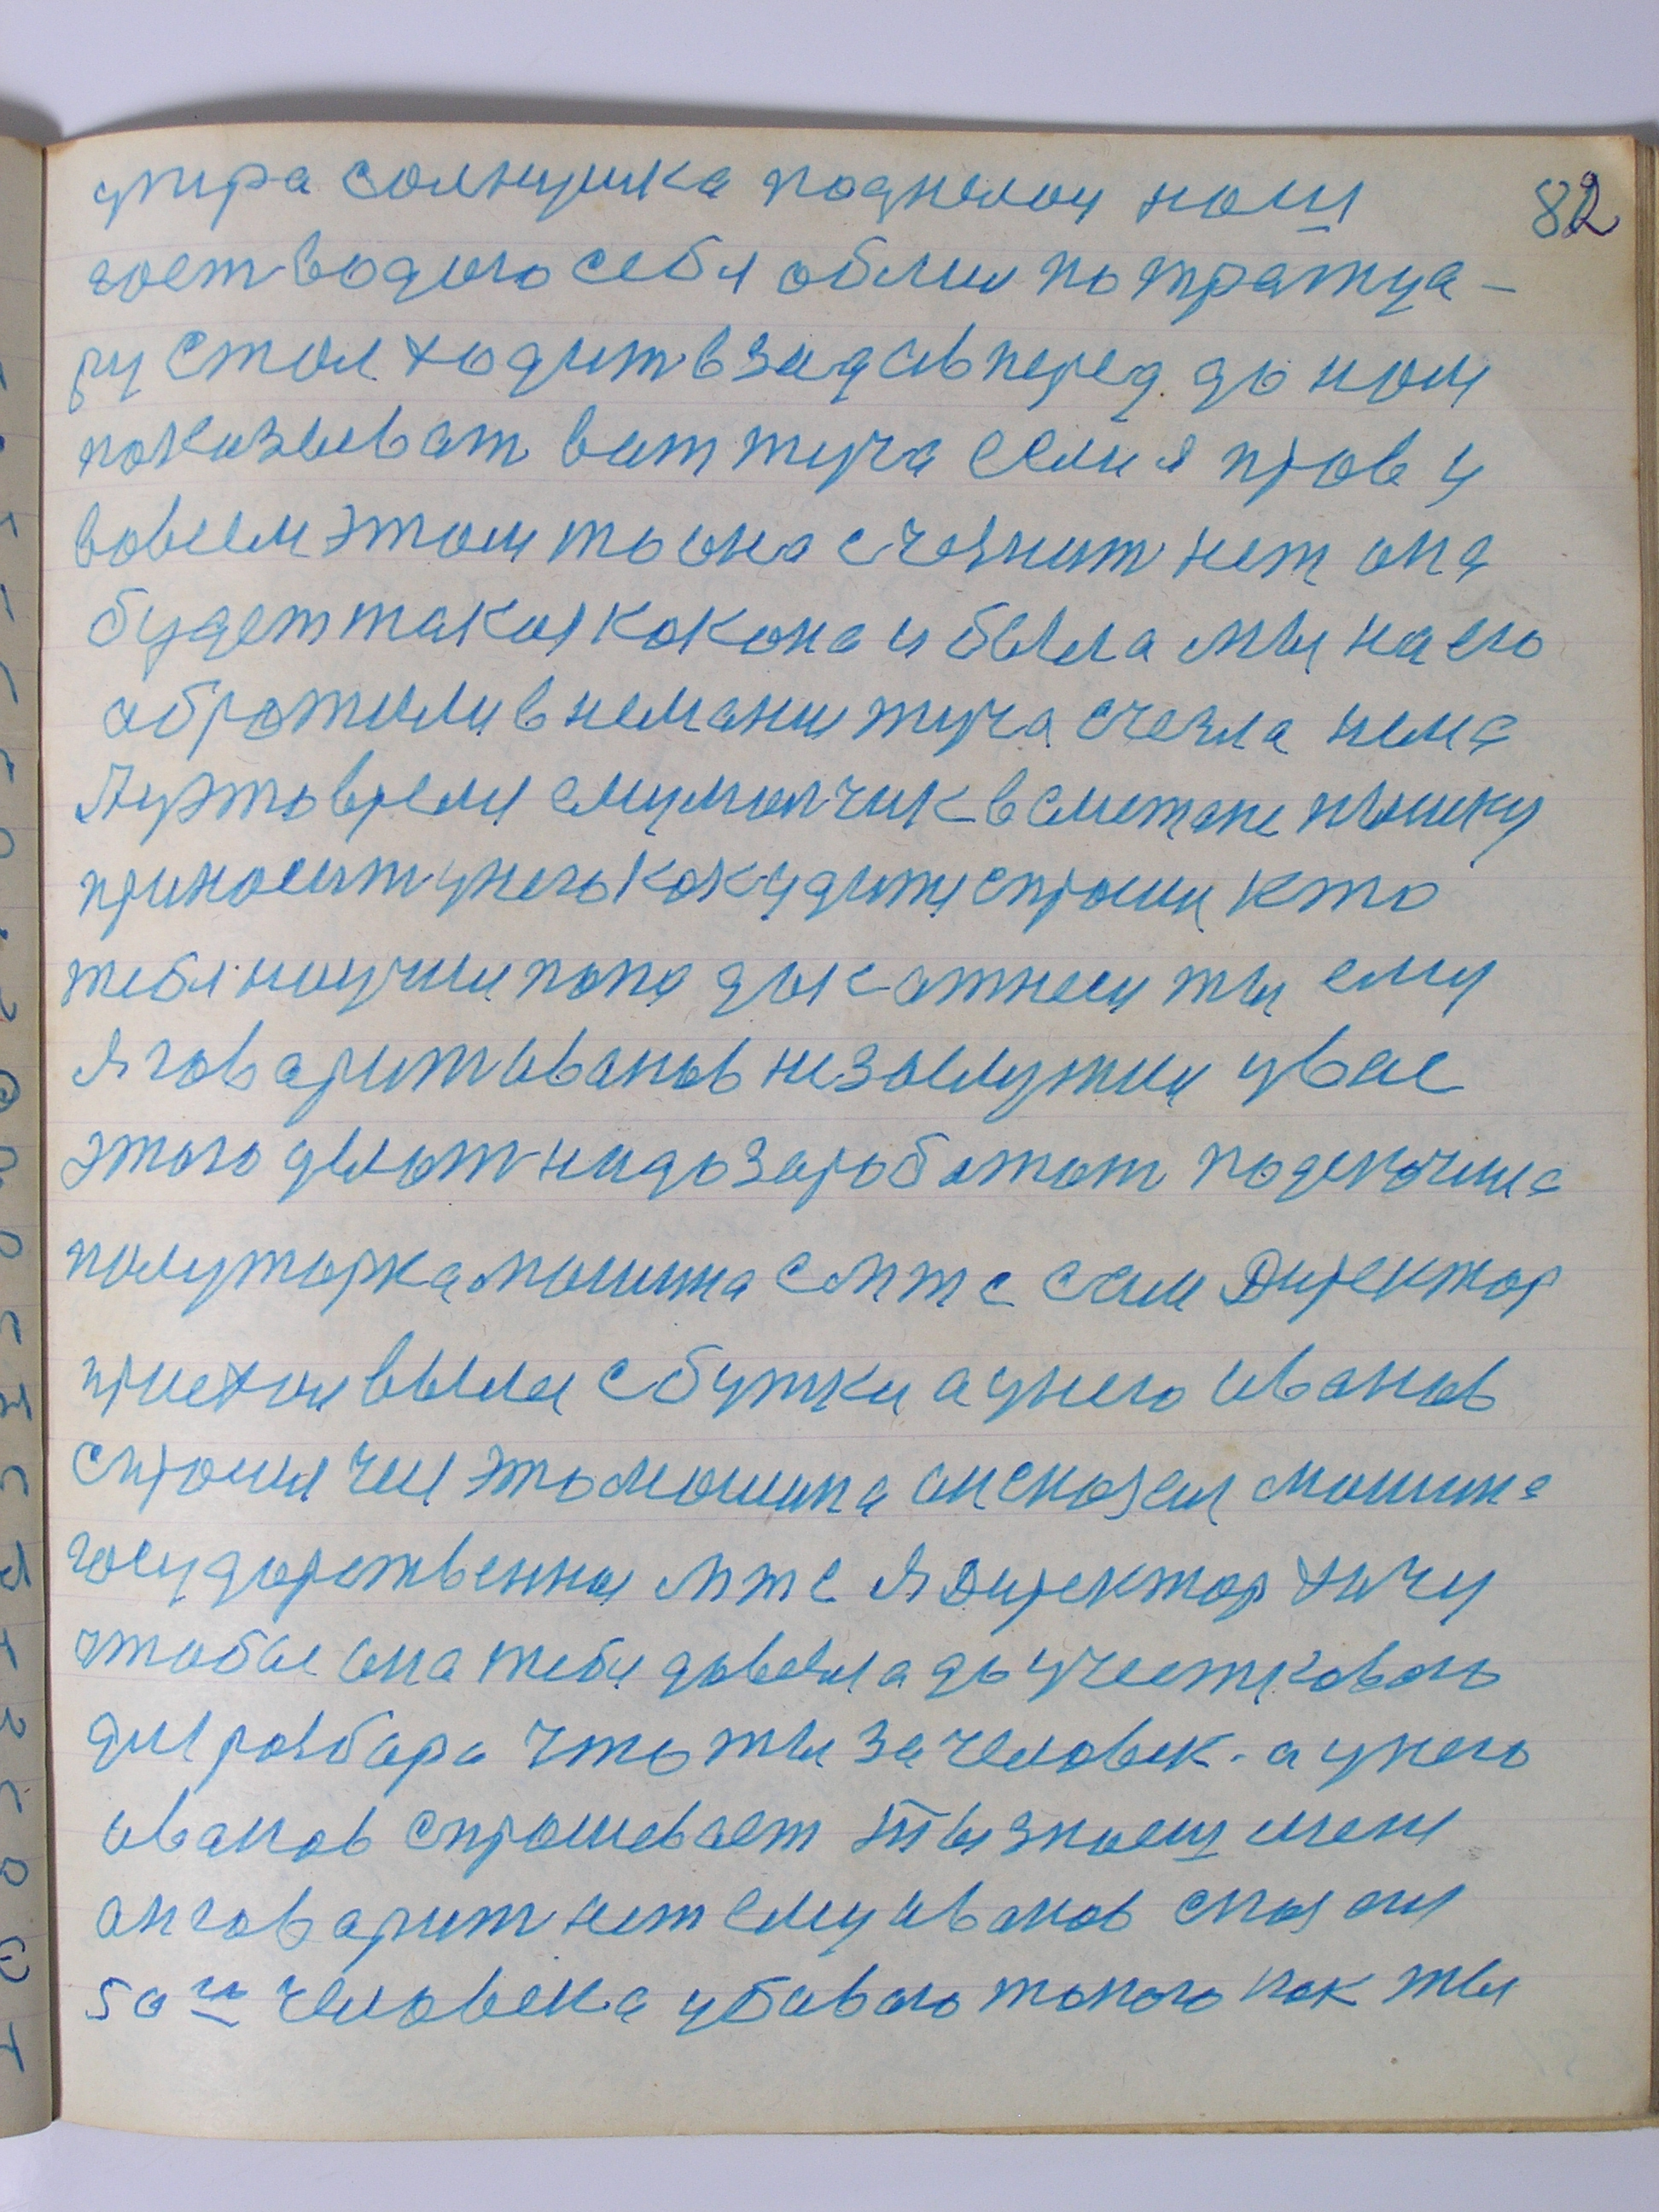 82
утра солнушка поднелоц нош
гост водого себя облил по тратуа-
ру стол ходит взад ивперед до нош
показыват вит туча если я прав у
вовсем этом то она счезнит нет она
будет такоя как она и была мы на ею
обротили внемание туча счезла нема
Аутовремя емумолчик всметане пышку
приносит унегококудити спроши кто
тебя ноучил попа дык отнеси ты ему
я говарит иванов незаслужил увас
этого делот надо заработат подскочила
полуторка мошина с мтс сам Директор
приехал вылез с бутки а унего иванов
спросил чия это мошина он сказал мошина
государственная мтс я Директор хичу
чтобы она тебя довезла до учесткового
для розбора что ты за человек. а унего
иванов спрошевает ты знаеш меня
он говарит нет ему иванов сказал
50и человека убивого токого как ты